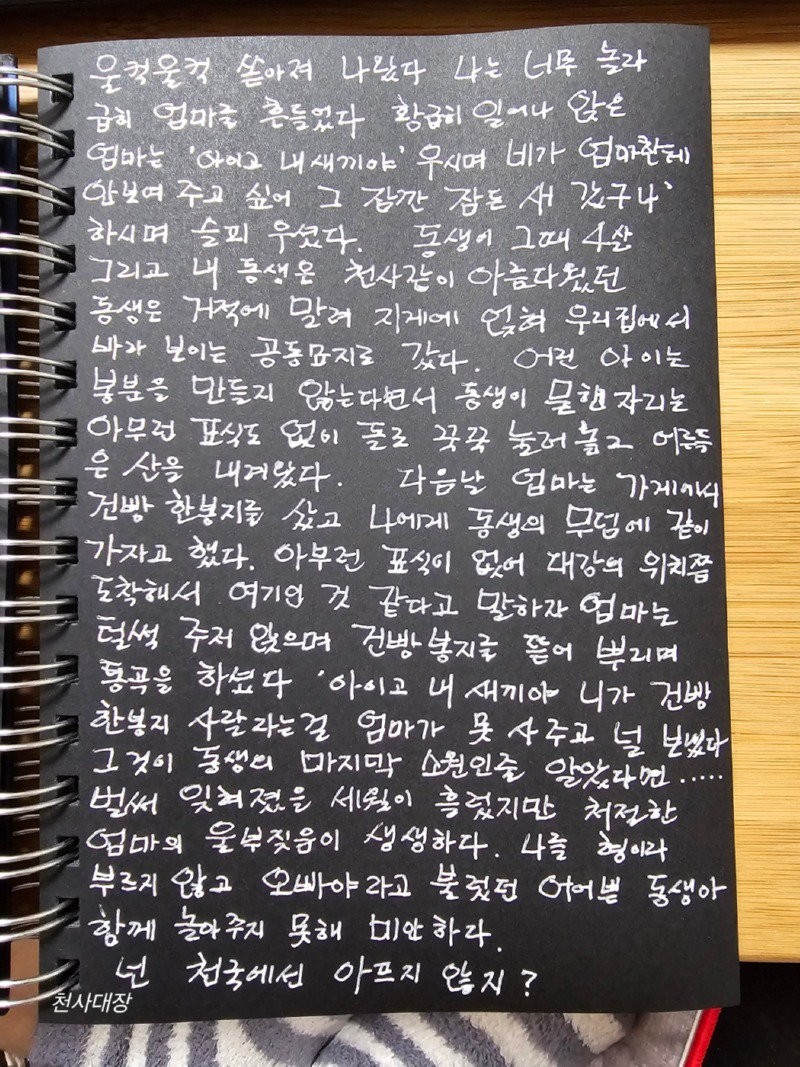 울컥울컥 쏟아져 나왔다 나는 너무 놀라
급히 엄마를 흔들었다 황급히 일어나 앉은
엄마는 '아이고 내새끼야' 우시며 네가 엄마한테
안보여 주고 싶어 그 잠깐 잠든 새 갔구나'
하시며 슬피 우셨다. 동생이 그때 4살
그리고 내 동생은 천사같이 아름다웠던
동생은 거적에 말려 지게에 얹혀 우리집에서
바라 보이는 공동묘지로 갔다. 어린 아이는
봉분을 만들지 않는다면서 동생이 묻힌 자리는
아무런 표식도 없이 돌로 꾹꾹 눌러놓고 어른들
은 산을 내려왔다. 다음날 엄마는 가게에서
건빵 한봉지를 샀고 나에게 동생의 무덤에 같이
가자고 했다. 아무런 표식이 없어 대강의 위치쯤
도착해서 여기인 것 같다고 말하자 엄마는
털썩 주저 앉으며 건빵봉지를 뜯어 뿌리며
통곡을 하셨다 '아이고 내 새끼야 니가 건빵
한봉지 사달라는걸 엄마가 못 사주고 널 보냈다
그것이 동생의 마지막 소원인줄 알았다면.....
벌써 잊혀졌을 세월이 흘렀지만 처절한
엄마의 울부짖음이 생생하다. 나를 형이라
부르지 않고 오빠야라고 불렀던 어여쁜 동생아
함께 놀아주지 못해 미안하다.
넌 천국에선 아프지 않지?
천사대장